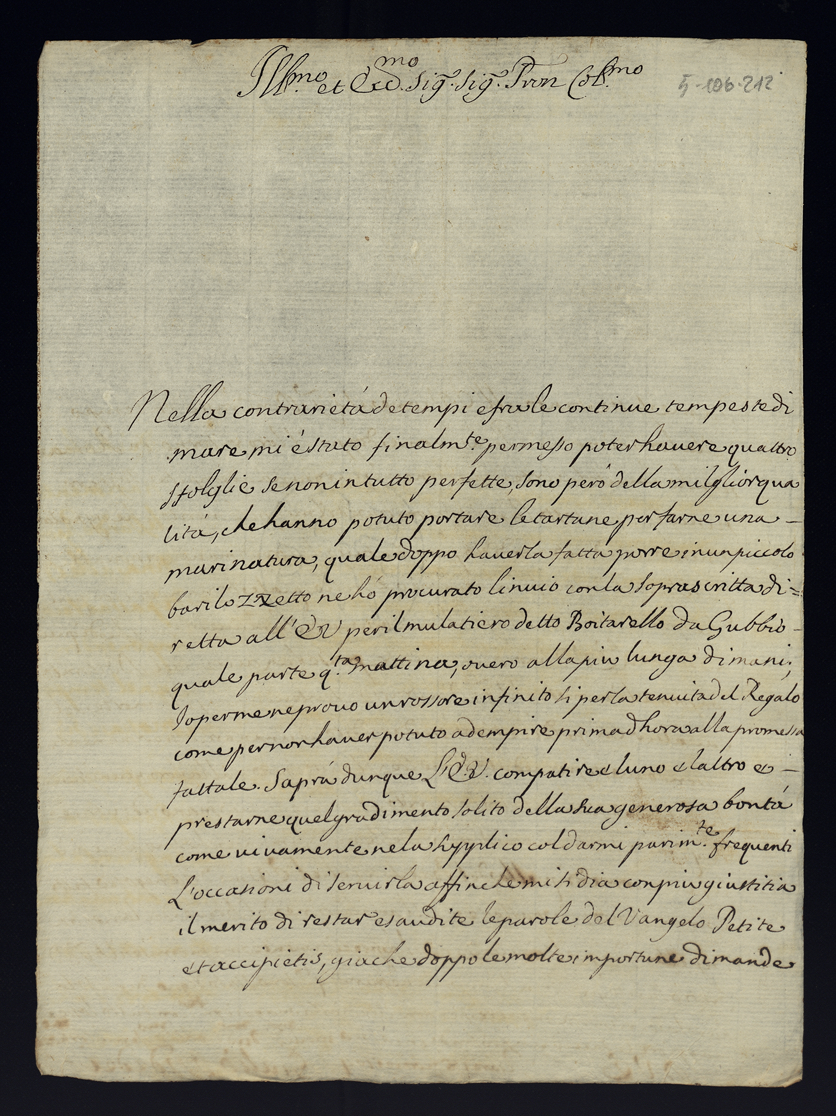 Ill.mo et Ecc.mo Sig.r Sig.r Pron Col.mo
5-106-212
Nella contrarietá de tempi e fra le continue tempeste di
mare mi é stato finalm.te permesso poter havere quattro
sfolglie se non in tutto perfette, sono peró della milglior qua
litá, che hanno potuto portare le tartane per farne una –
marinatura, quale doppo haverla fatta porre in un piccolo
barilozzetto ne hó procurato linuio con la soprascritta di=
retta all'E V per il mulatiero detto Boitarello da Gubbio –
quale parte q.ta mattina, overo alla piu lunga dimani,
Io per me ne provo un rossore infinito si per la tenuita del Regalo
come per non haver potuto adempire prima d hora alla promessa
fattale. Saprá dunque L'E.V. compatire e luno e laltro e –
prestarne quel gradimento solito della sua generosa bontá
come vivamente ne la supplico col darmi parim.te frequenti
L'occasioni di servirla affinche mi si dia con piu giustitia
il merito di restar esaudite le parole del Vangelo Petite
et accipietis, giache doppo le molte importune dimande